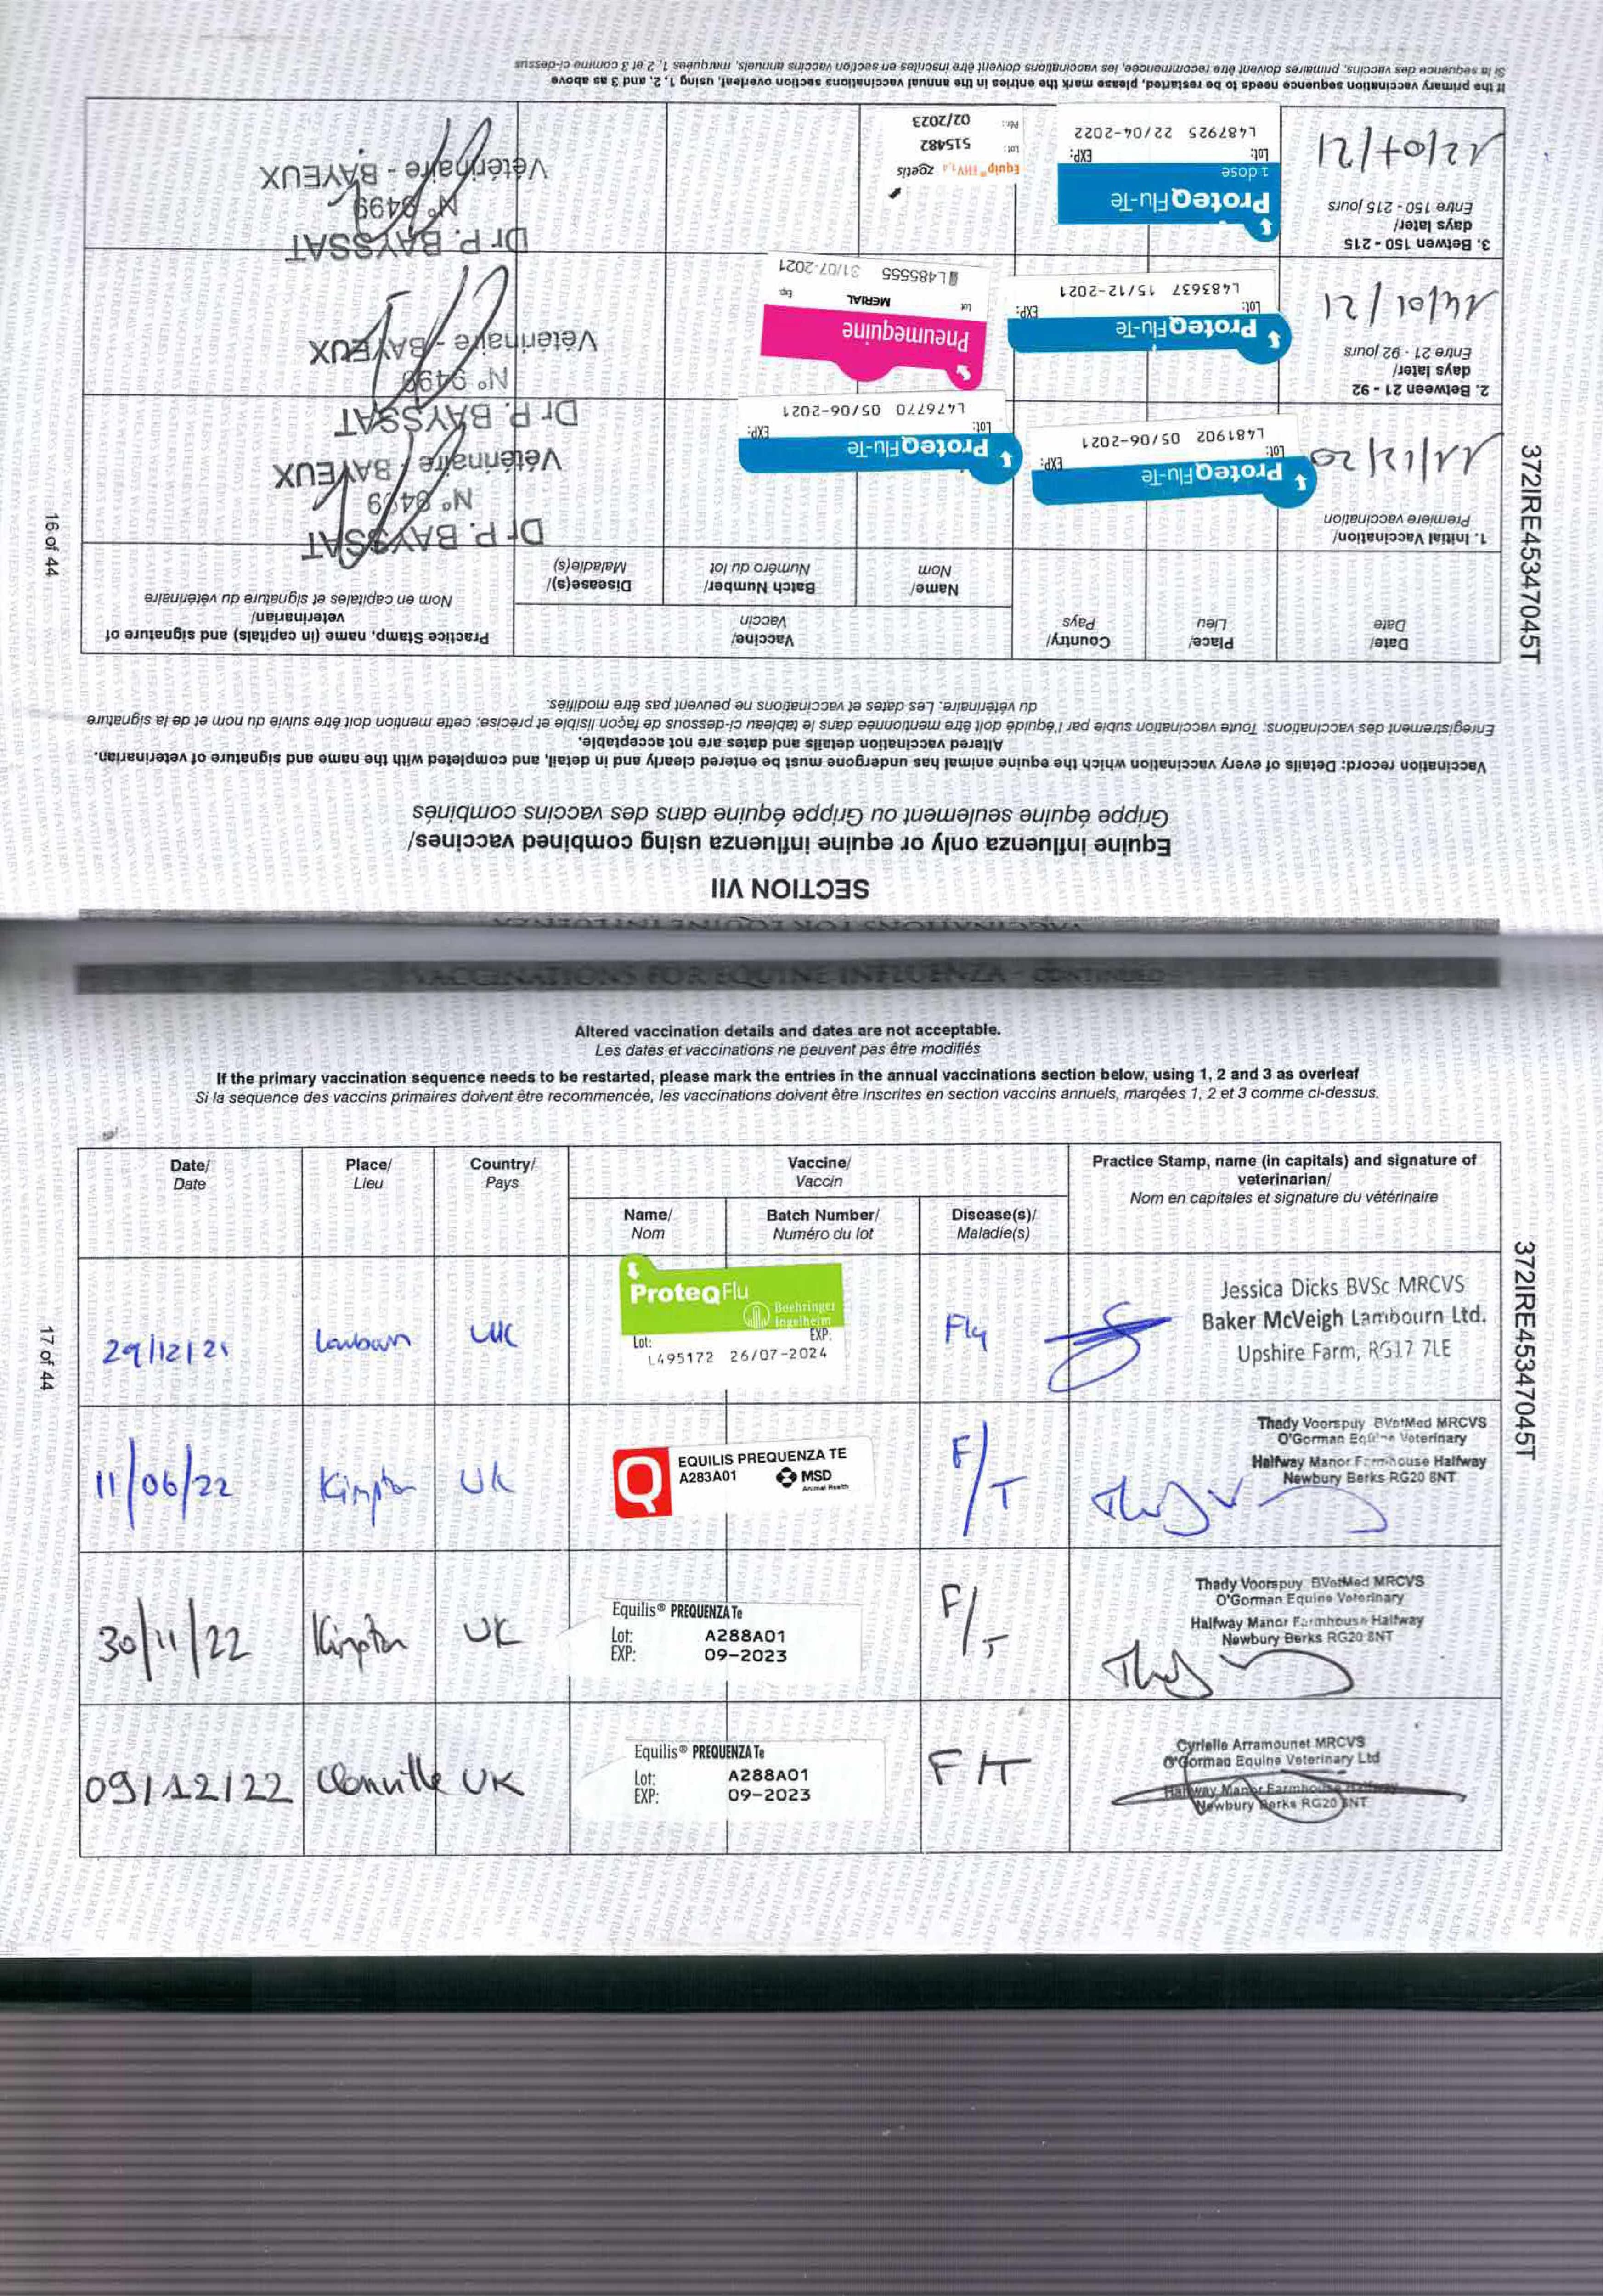 SECTION VII
Equine influenza only or equine influenza using combined vaccines/
Grippe équine seulement ou Grippe équine dans des vaccins combinés
Vaccination record: Details of every vaccination which the equine animal has undergone must be entered clearly and in detail, and completed with the name and signature of veterinarian.
Altered vaccination details and dates are not acceptable.
Enregistrement des vaccinations: Toute vaccination subie par l'équidé doit être mentionnée dans le tableau ci-dessous de façon lisible et précise; cette mention doit être suivie du nom et de la signature
du vétérinaire. Les dates et vaccinations ne peuvent pas être modifiés.
Date/
Date
Place/
Lieu
Country/
Pays
Vaccine/
Vaccin
Name/
Nom
Batch Number/
Numéro du lot
Disease(s)/
Maladie(s)
Practice Stamp, name (in capitals) and signature of
veterinarian/
Nom en capitales et signature du vétérinaire
1. Initial Vaccination/
Premiere vaccination
11/12/20
ProteqFlu-Te
Lot: EXP:
L481902 05/06-2021
ProteqFlu-Te
Lot: EXP:
L476770 05/06-2021
Dr P. BAYSSAT
N° 8499
Vétérinaire - BAYEUX
2. Between 21 - 92
days later/
Entre 21 - 92 jours
14/01/21
ProteqFlu-Te
Lot: EXP:
L483637 15/12-2021
Pneumequine
Lot MERIAL Exp
L485555 31/07-2021
Dr P. BAYSSAT
N° 8499
Vétérinaire - BAYEUX
3. Betwen 150 - 215
days later/
Entre 150 - 215 jours
12/07/21
ProteqFlu-Te
1 dose
Lot: EXP:
L487925 22/04-2022
Equip® EHV1,4 zoetis
Lot: 515482
Pér.: 02/2023
Dr P. BAYSSAT
N° 8499
Vétérinaire - BAYEUX
If the primary vaccination sequence needs to be restarted, please mark the entries in the annual vaccinations section overleaf, using 1, 2, and 3 as above
Si la sequence des vaccins, primaires doivent être recommencée, les vaccinations doivent être inscrites en section vaccins annuels, marquées 1, 2 et 3 comme ci-dessus
372IRE45347045T
16 of 44
VACCINATIONS FOR EQUINE INFLUENZA - CONTINUED
Altered vaccination details and dates are not acceptable.
Les dates et vaccinations ne peuvent pas être modifiés
If the primary vaccination sequence needs to be restarted, please mark the entries in the annual vaccinations section below, using 1, 2 and 3 as overleaf
Si la sequence des vaccins primaires doivent être recommencée, les vaccinations doivent être inscrites en section vaccins annuels, marqées 1, 2 et 3 comme ci-dessus.
Date/
Date
Place/
Lieu
Country/
Pays
Vaccine/
Vaccin
Name/
Nom
Batch Number/
Numéro du lot
Disease(s)/
Maladie(s)
Practice Stamp, name (in capitals) and signature of
veterinarian/
Nom en capitales et signature du vétérinaire
29/12/21
UK
ProteqFlu
Boehringer
Ingelheim
Lot: EXP:
L495172 26/07-2024
Jessica Dicks BVSc MRCVS
Baker McVeigh Lambourn Ltd.
Upshire Farm, RG17 7LE
11/06/22
Kimpton
UK
EQUILIS PREQUENZA TE
A283A01 MSD
Animal Health
F/T
Thady Voorspuy BVetMed MRCVS
O'Gorman Equine Veterinary
Halfway Manor Farmhouse Halfway
Newbury Berks RG20 8NT
30/11/22
Kimpton
UK
Equilis® PREQUENZA Te
Lot: A288A01
EXP: 09-2023
F/T
Thady Voorspuy BVetMed MRCVS
O'Gorman Equine Veterinary
Halfway Manor Farmhouse Halfway
Newbury Berks RG20 8NT
09/12/22
UK
Equilis® PREQUENZA Te
Lot: A288A01
EXP: 09-2023
F/T
Cyrielle Arramounet MRCVS
O'Gorman Equine Veterinary Ltd
Halfway Manor Farmhouse Halfway
Newbury Berks RG20 8NT
372IRE45347045T
17 of 44